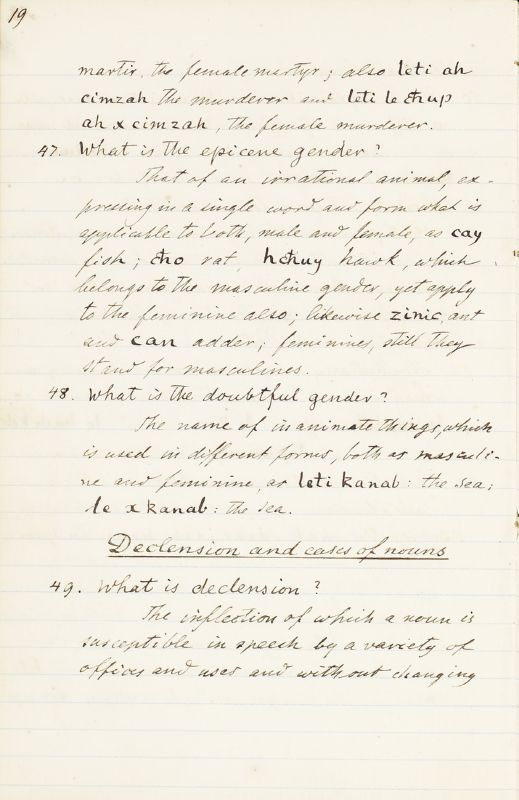 19
martir, the female martyr; also leti ah
cimzah the murderer and leti le chup
ah x cimzah, the female murderer.
47. What is the epicene gender?
That of an irrational animal, ex-
pressing in a single word and form what is
applicable to both, male and female, as cay
fish; cho rat, hchuy hawk, which
belongs to the masculine gender, yet apply
to the feminine also; likewise zinic, ant
and can adder; feminines, still they
stand for masculines.
48. What is the doubtful gender?
The name of inanimate things, which
is used in different forms, both as masculi-
ne and feminine, as leti kanab: the sea;
le x kanab: the sea.
Declension and cases of nouns
49. What is declension?
The inflection of which a noun is
susceptible in speech by a variety of
offices and uses and without changing